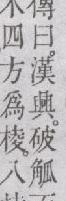 傳曰。漢興。破觚
木四方爲棱。八